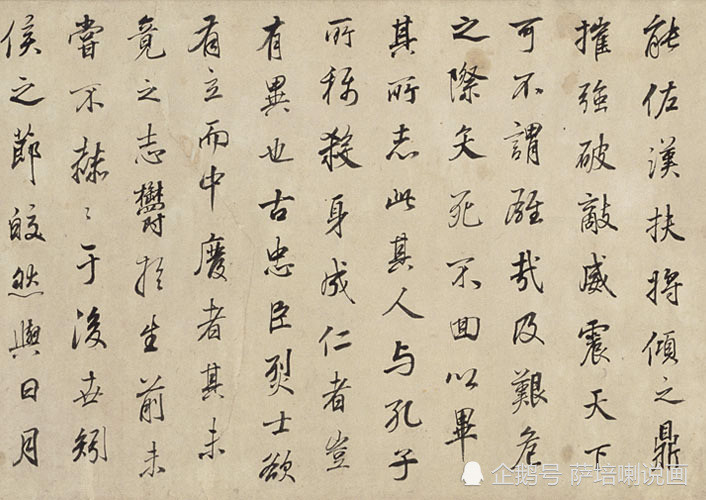 能佑漢扶將傾之鼎
摧強破敵威震天下
可不謂雄哉及艱危
之際矢死不回以畢
其所志此其人与孔子
所稱殺身成仁者豈
有異也古忠臣烈士欲
有立而中廢者其未
竟之志欝於生前未
嘗不赫〻于後世矧
侯之節皎然與日月
企鹅号 萨培喇说画